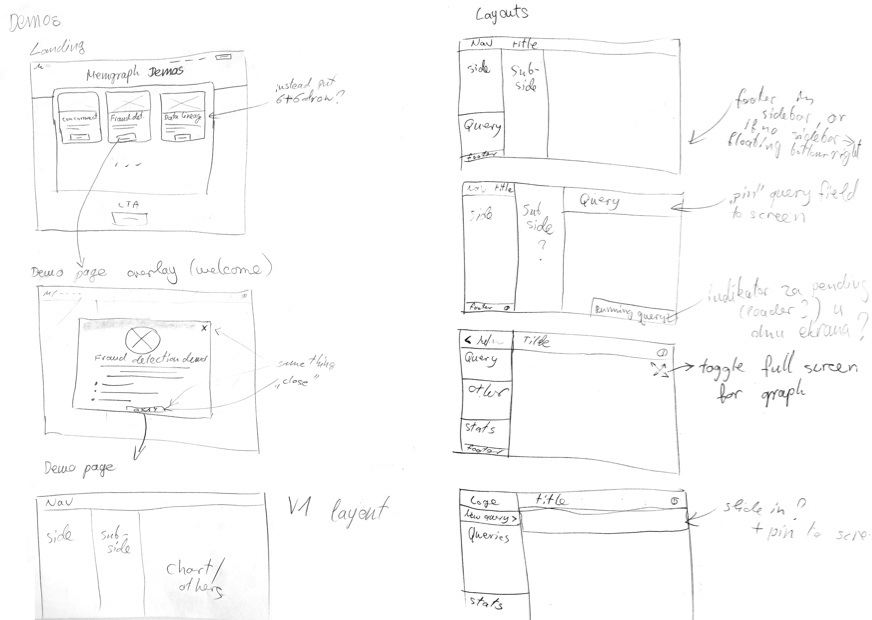 Demos
Landing
Memgraph Demos
instead put
6+6 drow?
Fraud det.
CTA
Demo page overlay (welcome)
x
Fraud detection demo
same thing
"close"
Demo page
Nav
side
sub-
side
chart/
others
V1 layout
Layouts
Nav title
side
Sub-
side
Query
footer
footer in
sidebar, or
if no sidebar →
floating bottom right
Nav title
side
Sub
side
?
Query
footer
Running query
"pin" query field
to screen
indikator za pending
(loader?) u
dnu ekrana?
< title
Query
other
stats
footer
toggle full screen
for graph
title
New query >
Queries
stats
slide in?
+ pin to scre